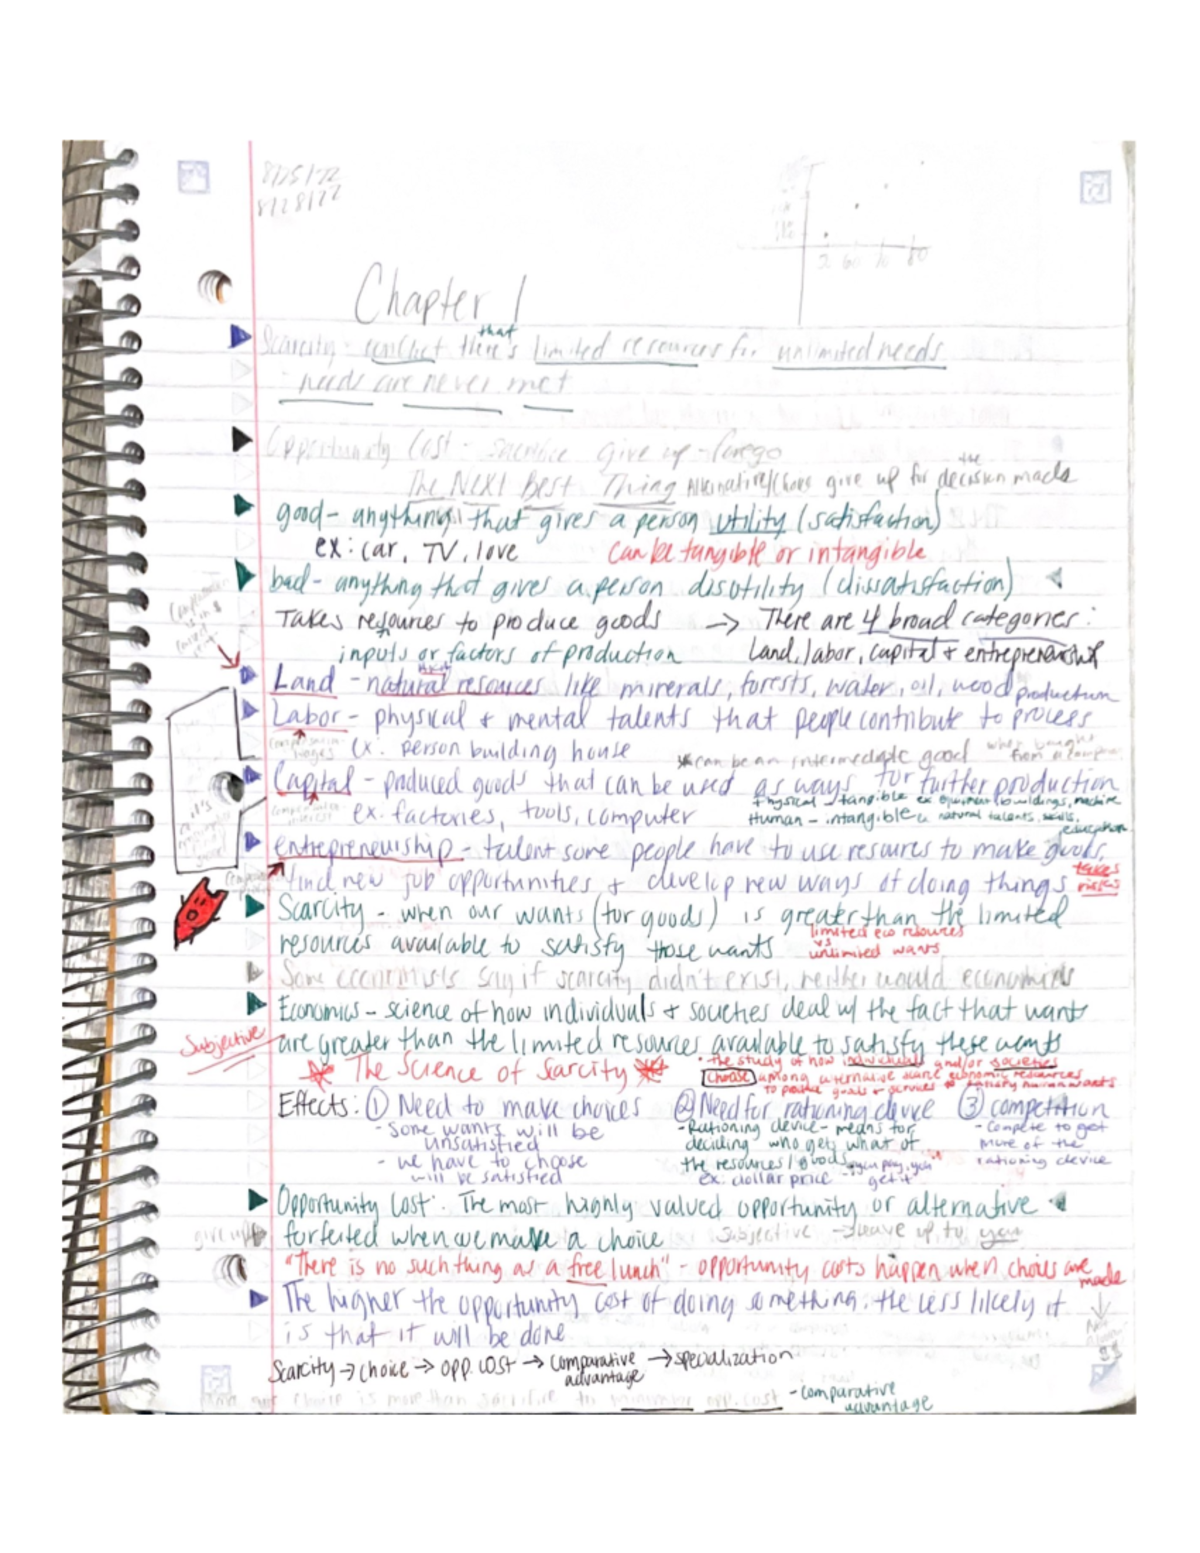 8/25/22
8/28/22
Chapter 1
Scarcity - conflict that there's limited resources for unlimited needs
- needs are never met
Opportunity Cost - sacrifice give up - forego
The Next Best Thing Alternative/choice give up for the decision made
good - anything that gives a person utility (satisfaction)
ex: car, TV, love can be tangible or intangible
bad - anything that gives a person disutility (dissatisfaction)
Takes resources to produce goods → There are 4 broad categories:
inputs or factors of production Land, labor, capital + entrepreneurship
Land - natural resources like minerals, forests, water, oil, wood
Labor - physical + mental talents that people contribute to production process
ex: person building house *can be an intermediate good when bought from a
Capital - produced goods that can be used as ways for further production
ex. factories, tools, computer
Physical - tangible ex equipment, buildings, machine
Human - intangible natural talents, skills, education
entrepreneurship - talent some people have to use resoures to make goods,
find new job opportunities + develop new ways of doing things takes risks
Scarcity - when our wants (for goods) is greater than the limited
resources available to satisfy those wants
limited eco resources
vs
unlimited wants
Some economists say if scarcity didn't exist, neither would economics
Economics - science of how individuals + societies deal w/ the fact that wants
Subjective
are greater than the limited resources available to satisfy these wants
The Science of Scarcity
• the study of how individuals and/or societies
choose among alternative scarce economic resources
to produce goods + services to satisfy human wants
Effects: ① Need to make choices ② Need for rationing device ③ competition
- some wants will be
unsatisfied
- we have to choose
will be satisfied
- Rationing device - means for
deciding who gets what of
the resources/goods
ex: dollar price - "you pay, you
get it"
- Compete to get
more of the
rationing device
Opportunity Cost: The most highly valued opportunity or alternative
give up
forfeited when we make a choice Subjective → leave up to you
"There is no such thing as a free lunch" - opportunity costs happen when choices are made
The higher the opportunity cost of doing something, the less likely it
is that it will be done
Scarcity → choice → opp. cost → comparative advantage → specialization
choice is more than sacrifice to opp. cost - comparative
advantage